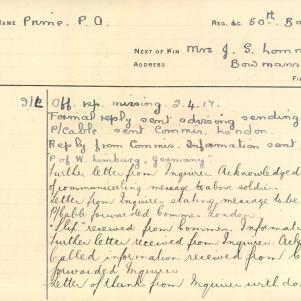 NAME Prime. P. A. REG. &c. 50th Ba
NEXT OF KIN Mrs J. S. Lomm
ADDRESS Bowmans
Fi
Off. rep. missing. 2.4.17.
Formal reply sent advising sending
P/Cable sent Commis. London.
Reply from Commis. Information sent
P of W. Limburg, Germany"
Further letter from Inquirer Acknowledged
of communicating message to above soldier.
Letter from Inquirer stating message to be
P/Cable forwarded Commis London
Slip received from Commis. Informati
Further letter received from Inquirer. Ack
Cabled information received from C
forwarded Inquirer
Letter of thanks from Inquirer with do